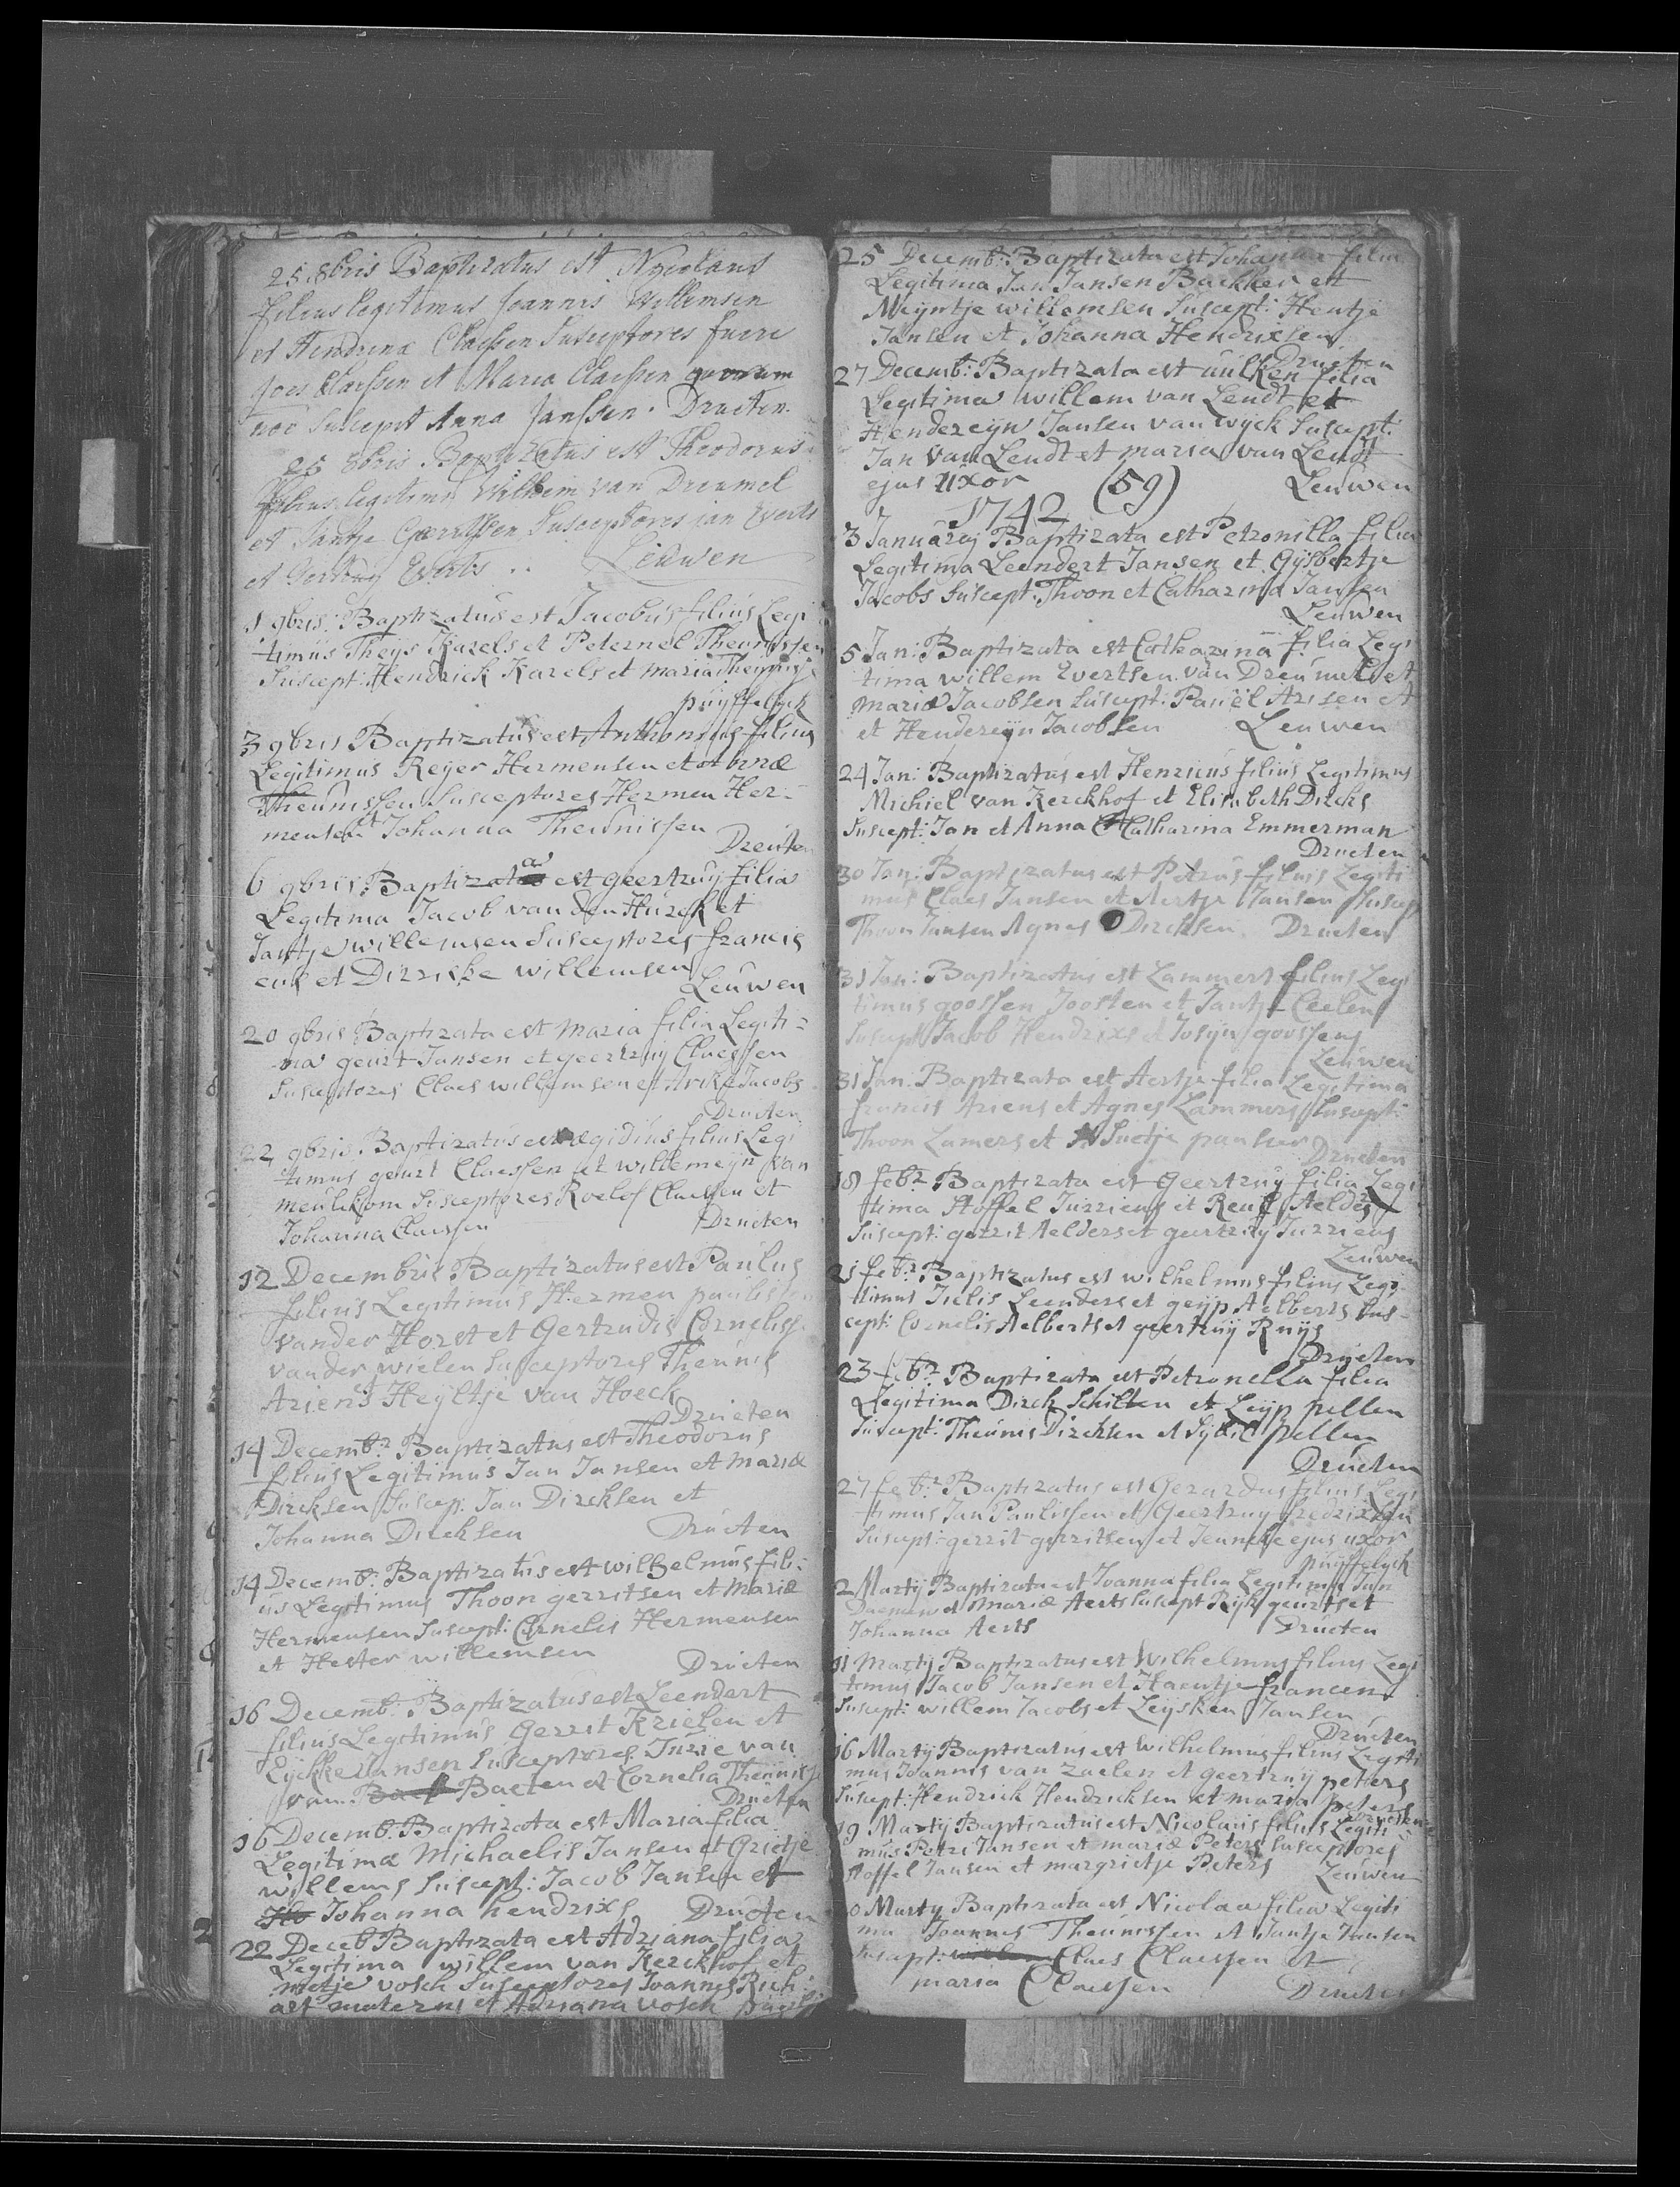 25. 8bris Baptizatus est Nicolaus
filius legitimus Joannis Willemsen
et Hendrina Claessen Susceptores fuere
Joes Claessen et Maria Claessen quorum
noē suscepit Anna Janssen. Druten.
26 8bris Baptizatus est Theodorus
filius legitimus Wilhem van Dreumel
et Jantje Gerritsen Susceptores ian Everts
et Gertruy Everts .. Leuwen
1 9bris Baptizatus est Jacobus filius Legi
timus Theys Karels et Peternel Theunissen
Suscept: Hendrick Karels et maria Theunisse
puyffelyck
3 9bris Baptizatus est Anthonius filius
Legitimus Reyer Hermensen et annæ
Theunissen Susceptores Hermen Her-
mensen et Johanna Theunissen
Dreuten
6 9bris Baptizata est geertruy filia
Legitima Jacob van den Hurck et
Jantje willemsen Susceptores francis
et Dirriske willemsen
Leuwen
20 9bris Baptizata est maria filia Legiti-
ma geurt Jansen et geertruy Claessen
Susceptores Claes willemsen et Jacobs
Druten
22 9bris Baptizatus est ægidius filius Legi
timus geurt Claessen et willemeyn van
meulekom Susceptores Roelof Claessen et
Johanna Claessen Druten
12 Decembris Baptizatus est Paulus
filius Legitimus Hermen paulissen
vander Horst et Gertrudis Cornelisse
vander wielen Susceptores Theunis
Ariens et Heyltje van Hoeck
Drueten
14 Decembr Baptizatus est Theodorus
filius Legitimus Jan Jansen et mariæ
Dircksen Suscep: Jan Dircksen et
Johanna Dircksen Drueten
14 Decemb: Baptizatus est wilhelmus fili-
us Legitimus Thoon gerritsen et mariæ
Hermensen Suscept: Cornelis Hermensen
et Hester willemsen Drueten
16 Decemb: Baptizatus est Leendert
filius Legitimus Gerrit Krielen et
Eyckke Jansen Susceptores Jurie van
van Baeten et Cornelia Theunisse
Drueten
16 Decemb: Baptizata est Maria filia
Legitima Michaelis Jansen et Grietje
willems Suscept: Jacob Jansen et
Johanna hendrixs Drueten
22 Deceb Baptizata est Adriana filia
Legitima willem van Kerckhof et
metje vosch Susceptores Joannes
maternus et Adriana vosch
25 Decemb: Baptizata est Johanna filia
Legitima Jan Jansen Backker ett
Meyntje willemsen Suscept: Hentje
Jansen et Johanna Hendrixsen
Drueten
27 Decemb: Baptizata est uulken filia
Legitima willem van Lendt et
Hendereyn Jansen van wyck Suscept:
Jan van Lendt et maria van Lendt
ejus uxor (59) Leuwen
1742
3 January Baptizata est Petronilla filia
Legitima Leendert Jansen et Gysbertje
Jacobs Suscept: Thoon et Catharina Jansen
Leuwen
5 Jan: Baptizata est Catharina filia Legi
tima willem Evertsen van Dreumel et
maria Jacobsen Suscept: Pauel Arisen et
et Hendereyn Jacobsen Leuwen
24 Jan: Baptizatus est Henricus filius Legitimus
Michiel van Kerckhof et Elisabeth Dircks
Suscept: Jan et Anna Catharina Emmerman
Drueten
30 Jan: Baptizatus est Petrus filius Legiti
mus Claes Jansen et Aertje Jansen Suscep
Thoon Jansen Agnes Dircksen. Drueten
31 Jan: Baptizatus est Lammert filius Legi
timus goossen Joosten et Jantje Ceelen
Suscept Jacob Hendrixs et Josyn goossens
Leuwen
31 Jan: Baptizata est Aertje filia Legitima
francis Ariens et Agnes Lammers Suscept:
Thoon Lamers et Suetje
Drueten
18 febr Baptizata est Geertruy filia Legi
tima Stoffel Jurriens et Reusf Aelders
Suscept: gerrit Aelders et geertruy Jurriens
Leuwen
21 febr: Baptizatus est wilhelmus filius Legi-
timus Jielis Leenders et geyp Aelberts Sus-
cept: Cornelis Aelberts et geertruy Ruys
Drueten
23 febr Baptizata est Petronella filia
Legitima Dirck Schilten et Leyp pellen
Suscept: Theunis Dircksen et Sybil pellen
Drueten
27 febr: Baptizatus est Gerardus filius Legi
timus Jan Paulissen et Geertruy fredrixsen
Suscept: gerrit gerritsen et Jenneke ejus uxor
puyffelyck
2 Marty Baptizata est Joanna filia Legitima Jan
et mariæ Aerts Suscept Ryk geurts et
Johanna Aerts Drueten
11 Marty Baptizatus est Wilhelmus filius Legi
timus Jacob Jansen et Haentje francen
Suscept: willem Jacobs et Leysken Jansen
Drueten
16 Marty Baptizatus est wilhelmus filius Legiti
mus Joannis van Zaelen et geertruy peters
Suscept: Hendrick Hendricksen et maria peters
Drueten
19 Marty Baptizatus est Nicolaus filius Legiti
mus Petri Jansen et mariæ Peters Susceptores
Stoffel Jansen et margrietje Peters Leuwen
0 Marty Baptizata est Nicolaa filia Legiti
ma Joannes Theunissen et Jantje Jansen
Suscept: Claes Claessen et
maria Claessen Drueten